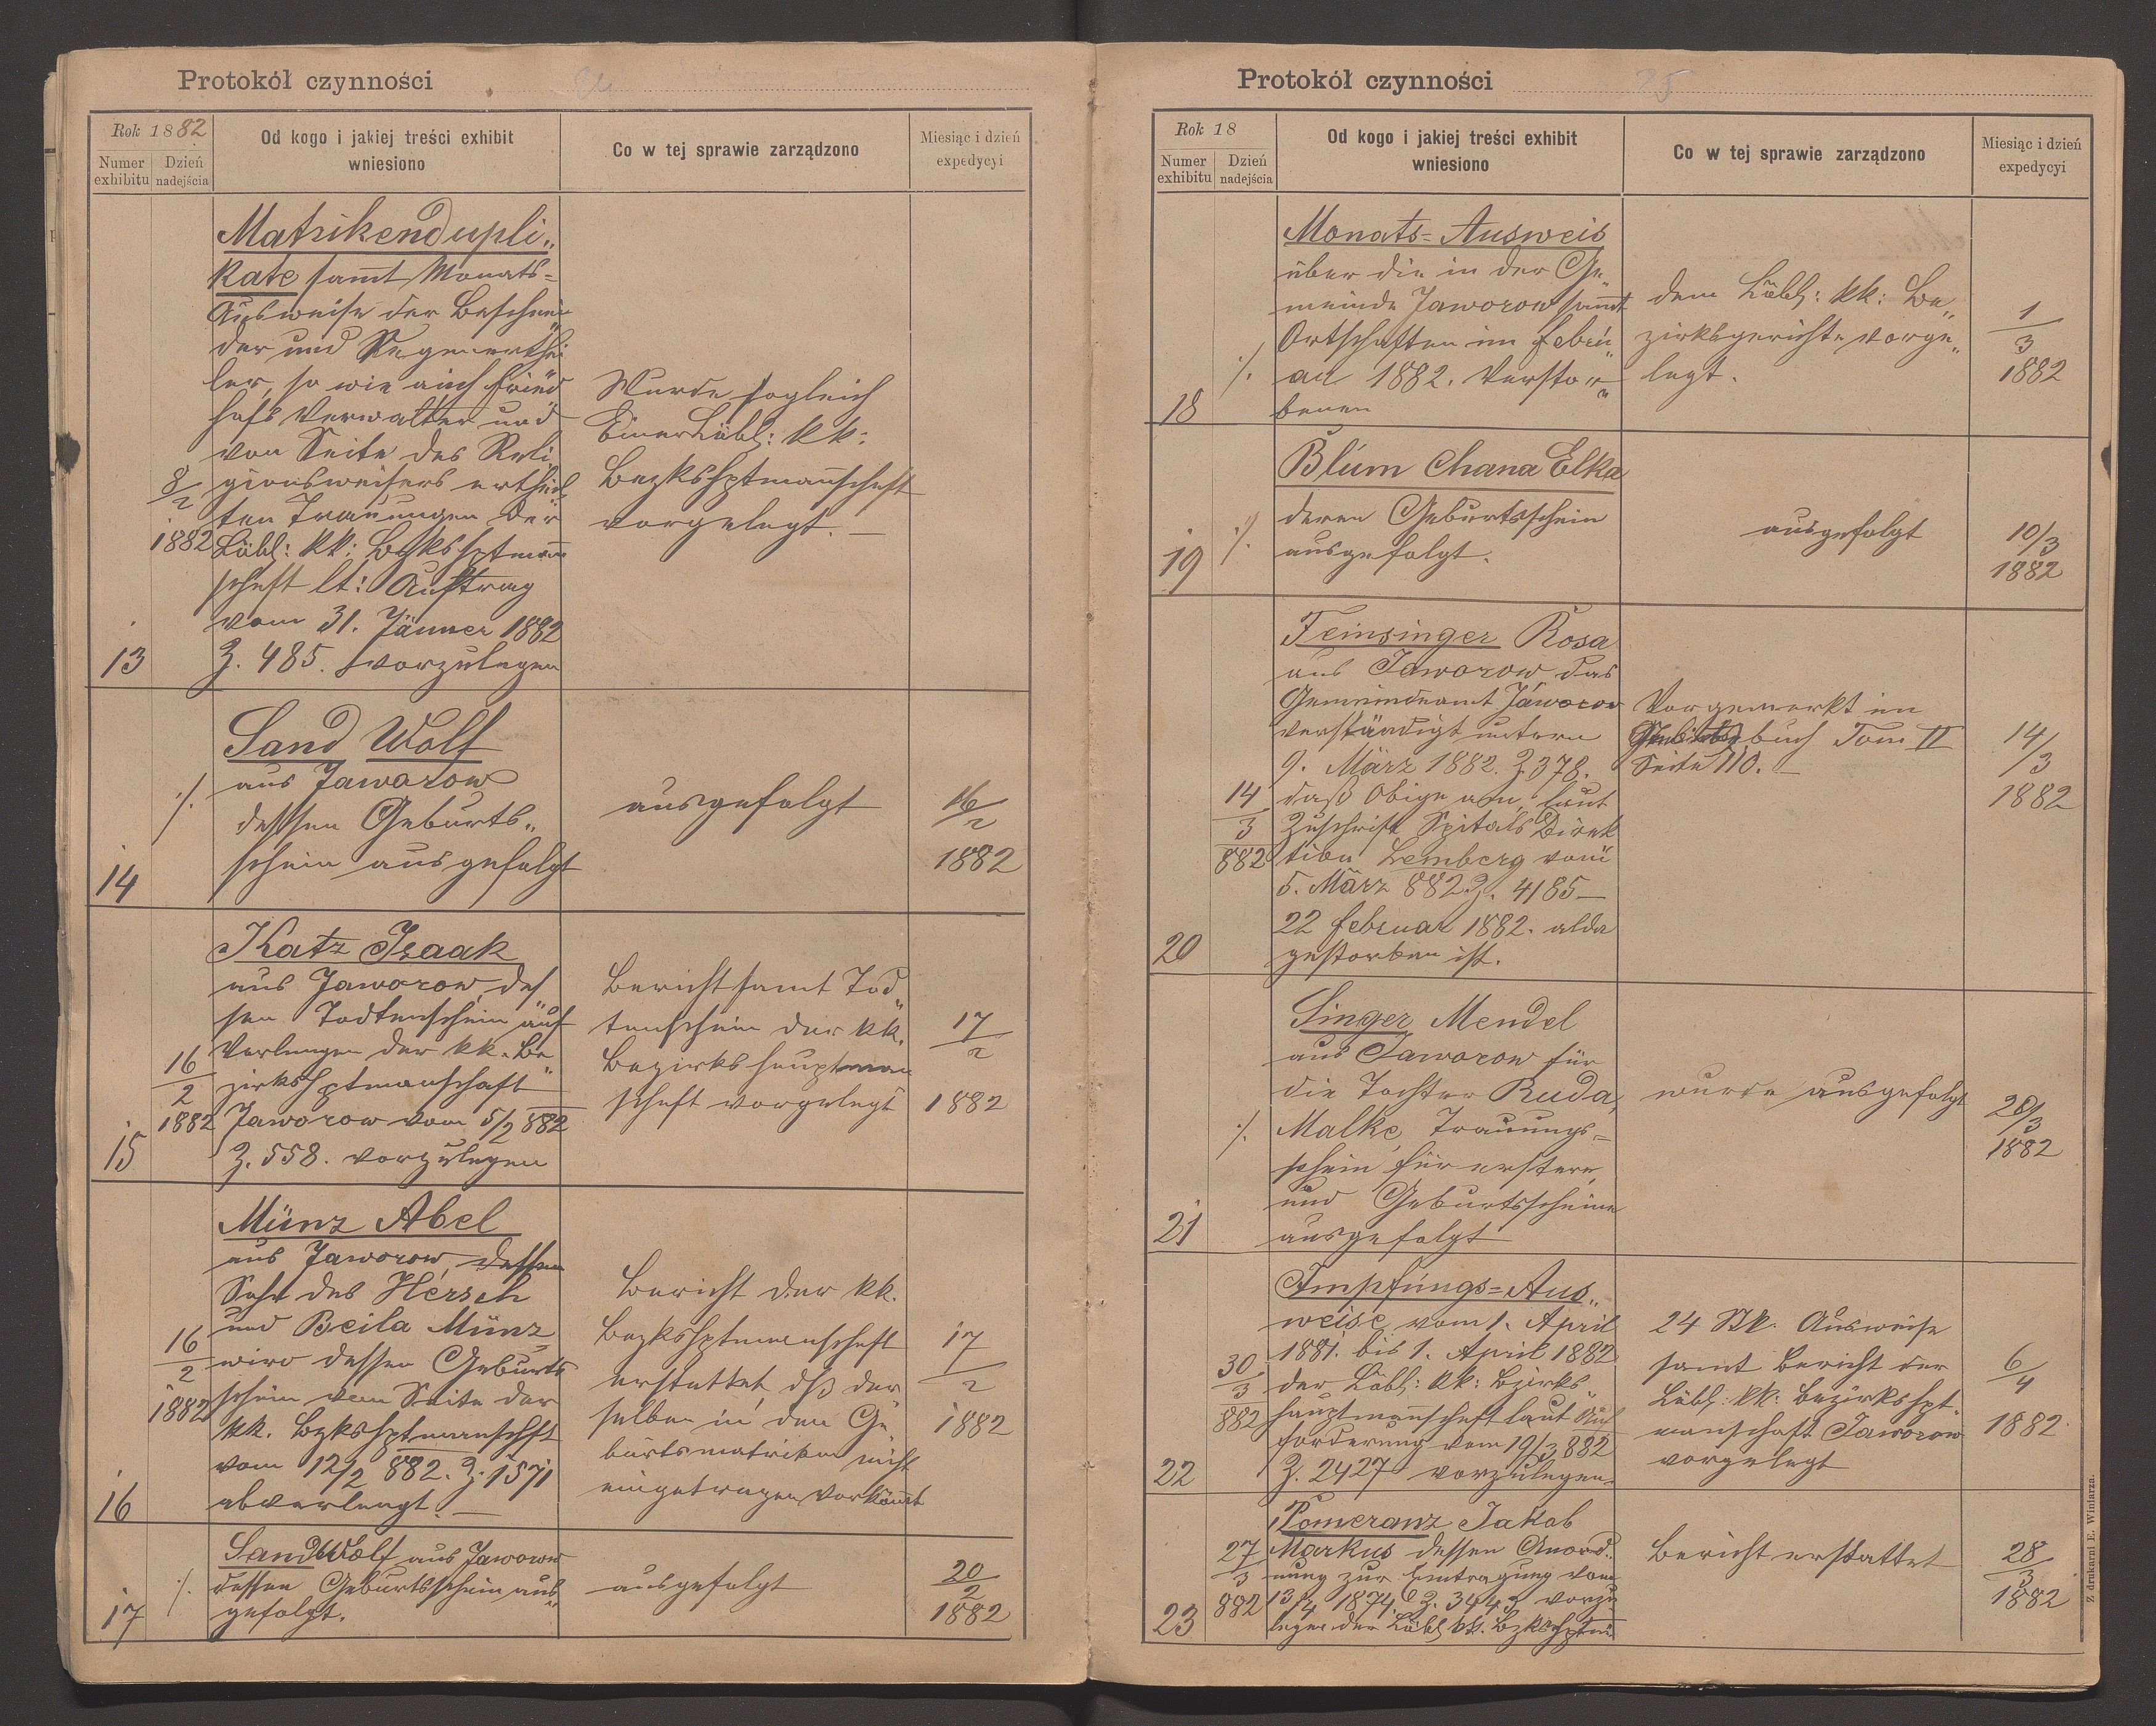 Protokół czynności
24
Rok 1882
Numer exhibitu
Dzień nadejścia
Od kogo i jakiej treści exhibit
wniesiono
Co w tej sprawie zarządzono
Miesiąc i dzień
expedycyi
13
8/2
1882
Matrikendupli„
kate samt Monats=
Ausweise der Beschnei„
der und Segenerthei
ler, so wie auch Fried
hofs Verwalter und
von Seite des Reli
gionsweisers ertheil
ten Trauungen der
Löbl: kk: Bzkshptmann
schaft lt: Auftrag
vom 31. Jänner 1882
Z. 485. vorzulegen
Wurde sogleich
Einer Löbl: kk:
Bezkshptmannschaft
vorgelegt. —
14
·/.
Sand Wolf
aus Jaworow
dessen Geburts„
schein ausgefolgt
ausgefolgt
16/2
1882
15
16/2
1882
Katz Isaak
aus Jaworow, des
sen Todtenschein auf
Verlangen der kk. Be„
zirkshptmanschaft
Jaworow vom 5/2 882
Z. 558. vorzulegen
Bericht samt Tod„
tenschein der kk.
Bezirkshauptman
schaft vorgelegt
17/2
1882
16
16/2
1882
Münz Abel
aus Jaworow, dessen
Sohn des Hersch
und Beila Münz
wird dessen Geburts
schein von Seite der
kk. Bzkshptmanschft
vom 12/2 882. Z. 1571
abverlangt. —
Bericht der kk.
Bezkshptmanschaft
erstattet, dß der
selbe in den Ge„
burtsmatriken nicht
eingetragen vorkömmt
17/2
1882
17
·/.
Sand Wolf aus Jaworow
dessen Geburtsschein aus„
gefolgt.
ausgefolgt
20/2
1882
Protokół czynności
25
Rok 18
Numer exhibitu
Dzień nadejścia
Od kogo i jakiej treści exhibit
wniesiono
Co w tej sprawie zarządzono
Miesiąc i dzień
expedycyi
18
·/.
Monats=Ausweis
über die in der Ge„
meinde Jaworow samt
Ortschaften im Febru„
ar 1882. Verstor„
benen
dem Löbl: kk: Be„
zirksgerichte vorge„
legt.
1/3
1882
19
·/.
Blum Chana Elka
deren Geburtsschein
ausgefolgt.
ausgefolgt
10/3
1882
20
14/3
882
Feinsinger Rosa
aus Jaworow, das
Gemeindeamt Jaworow
verständigt untern
9. März 1882. Z. 378.
daß Obige am, laut
Zuschrift Spitals Direk
tion Lemberg vom
5. März 882 Z. 4185 —
22 Februar 1882. alda
gestorben ist.
Vorgemerkt im
buch Tom II
Seite 110. —
14/3
1882
21
·/.
Singer Mendel
aus Jaworow für
die Tochter Ruda,
Malke, Trauungs=
schein für erstere
und Geburtsscheine
ausgefolgt
wurde ausgefolgt
20/3
1882
22
30/3
882
Impfungs=Aus„
weise vom 1. April
1881. bis 1. April 1882
der Löbl: kk: Bzirks„
hauptmannschaft laut Auf
forderung vom 19/3 882
Z. 2427 vorzulegen.
24 Stk. Ausweise
samt Bericht der
Löbl: kk: Bezirkshpt.
manschaft Jaworow
vorgelegt
6/4
1882
23
27/3
882
Pomeranz Jakob
Markus dessen Anord„
nung zur Eintragung vom
13/4 1874. Z. 3443 vorzu
legen der Löbl kk. Bzkshptm
Bericht erstattet
28/3
1882
Z drukarni E. Winiarza.